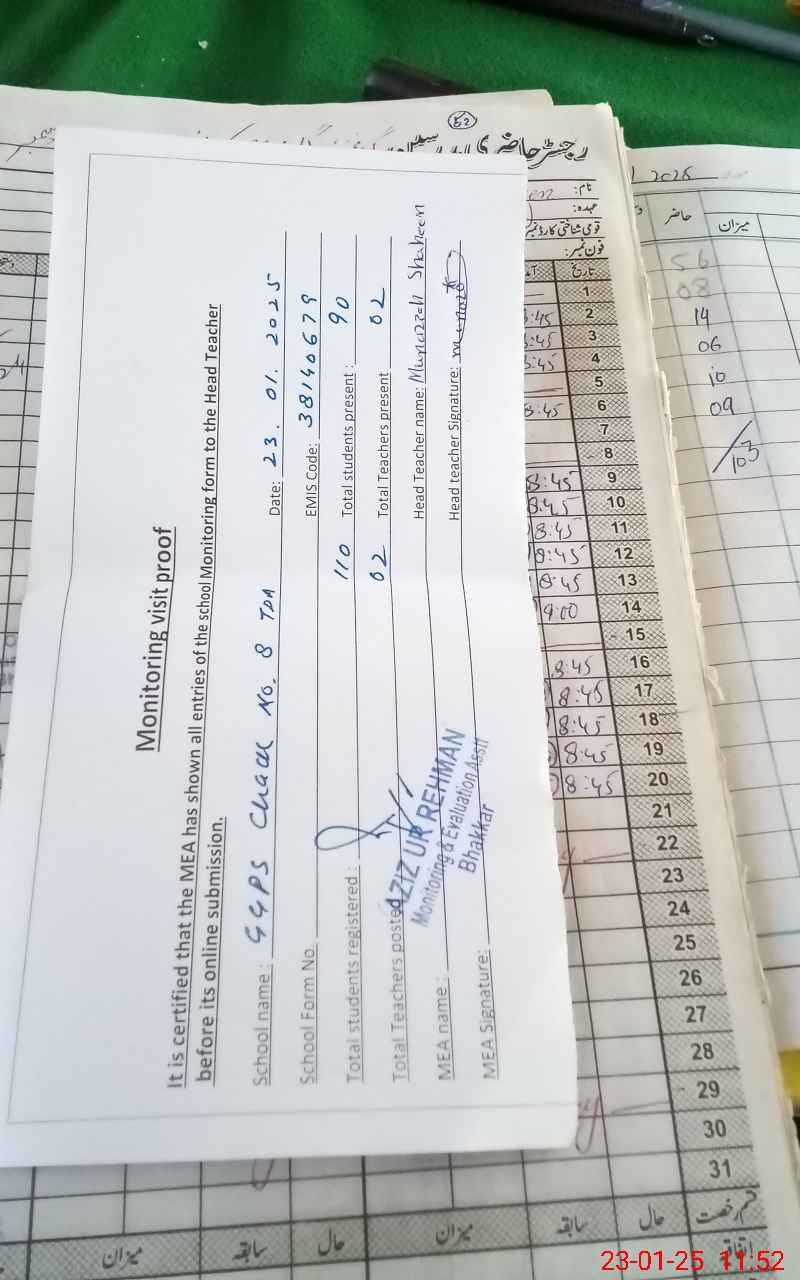 Monitoring visit proof
It is certified that the MEA has shown all entries of the school Monitoring form to the Head Teacher
before its online submission.
School name : GGPS Chack No. 8 TDA Date: 23. 01. 2025
School Form No. EMIS Code: 38140679
Total students registered : 110 Total students present : 90
Total Teachers posted 02 Total Teachers present 02
MEA name : Head Teacher name: Munazzah Shaheen
MEA Signature: Head teacher Signature:
AZIZ UR REHMAN
Monitoring & Evaluation Assit
Bhakkar
52
رجسٹر حاضری
نام:
عہدہ:
قومی شناختی کارڈ نمبر
فون نمبر:
تاریخ
1
2
3
4
5
6
7
8
9 8:45
10 8:45
11 8:45
12 8:45
13 8:45
14 9:00
15
16 8:45
17 8:45
18 8:45
19 8:45
20 8:45
21
22
23
24
25
26
27
28
29
30
31
قسم رخصت
حال
سابقہ
میزان
حال
سابقہ
میزان
اتفاقیہ
2025
حاضر
میزان
56
08
14
06
10
09
103
23-01-25 11:52